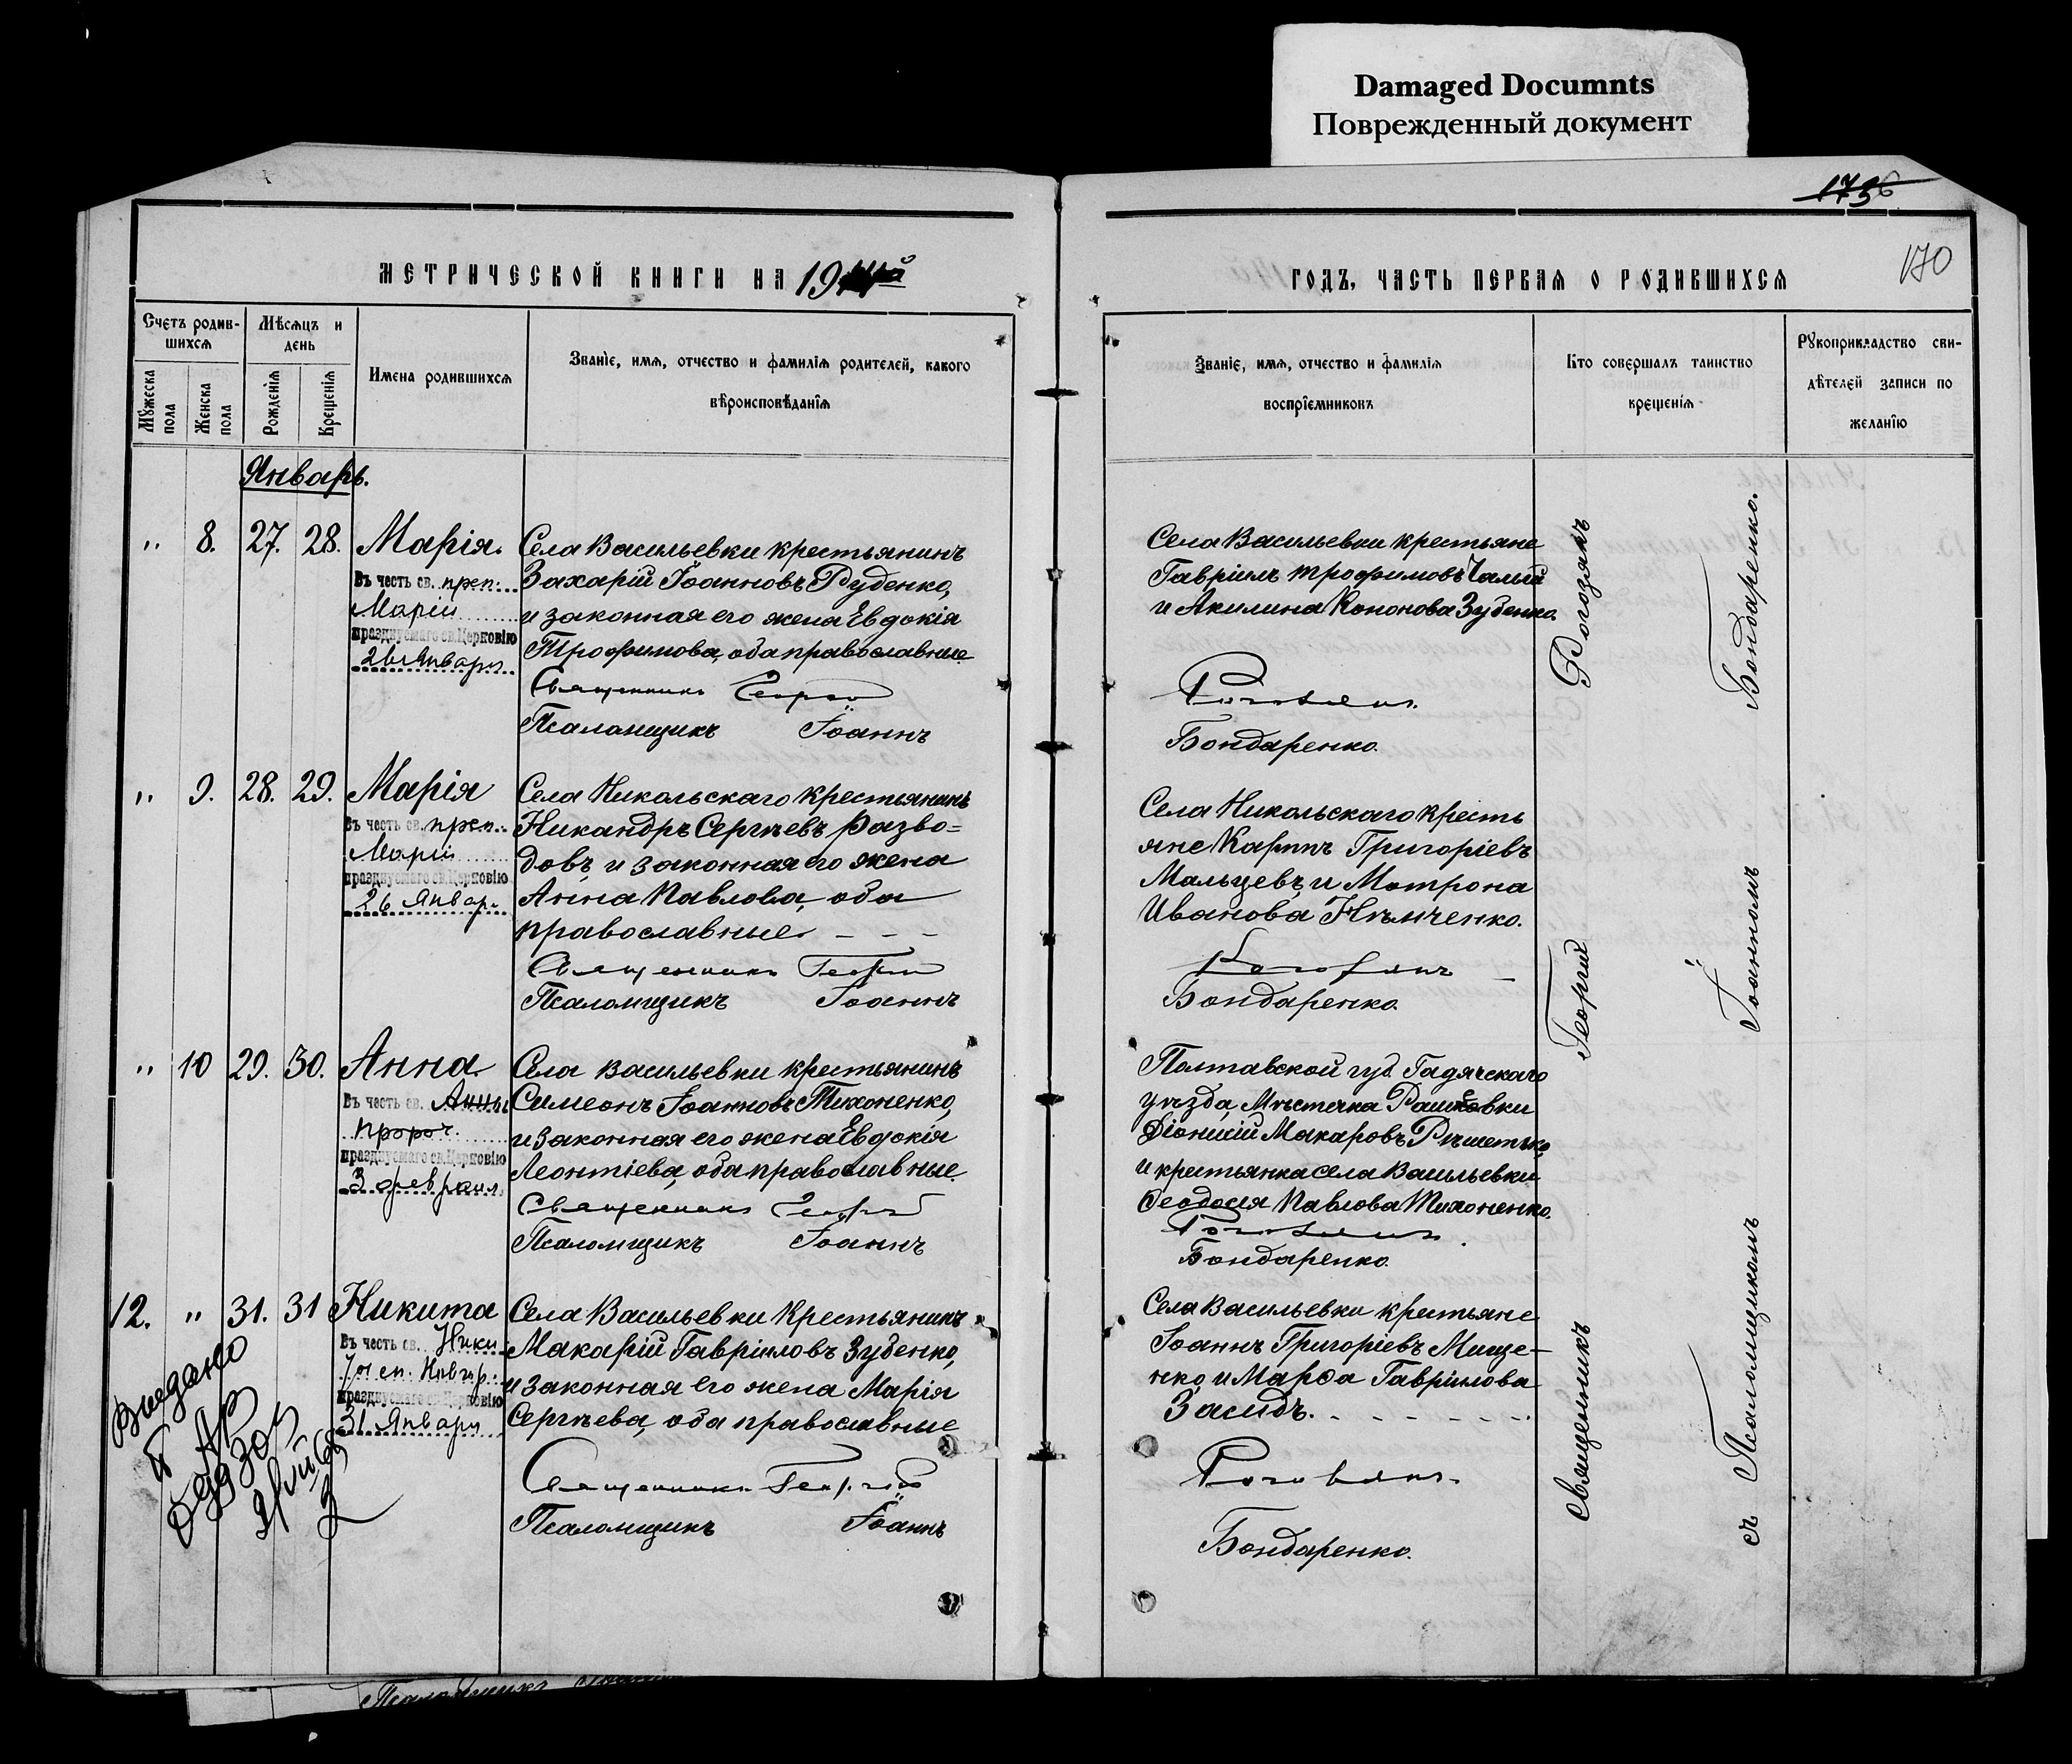 Damaged Documnts
Поврежденный документ
170
МЕТРИЧЕСКОЙ КНИГИ НА 19
ГОДЪ, ЧАСТЬ ПЕРВАЯ О РОДИВШИХСЯ
Счетъ родив-
шихся
Мѣсяцъ и
день
Мужеска пола
Женска пола
Рожденія
Крещенія
Имена родившихся
Званіе, имя, отчество и фамилія родителей, какого
вѣроисповѣданія
Званіе, имя, отчество и фамилія
воспріемниковъ
Кто совершалъ таинство
крещенія
Рукоприкладство сви-
дѣтелей записи по
желанію
Январь.
" 8. 27. 28. Марія.
Въ честь св. преп.
Маріи
празднуемаго св. Церковію
26 Января
Села Васильевки крестьянинъ
Захарій Іоанновъ Руденко,
и законная его жена Евдокія
Трофимова, оба православные
Священникъ Георгій
Псаломщикъ Іоаннъ
Села Васильевки крестьяне
Гавріилъ Трофимовъ Чалый
и Акилина Кононова Зубенко.
Рогозянъ
Бондаренко.
" 9. 28. 29. Марія
Въ честь св. преп.
Маріи
празднуемаго св. Церковію
26 Январ.
Села Никольскаго крестьянинъ
Никандръ Сергѣевъ Разво=
довъ, и законная его жена
Анна Павлова, оба
православные. - - -
Священникъ Георгій
Псаломщикъ Іоаннъ
Села Никольскаго кресть
яне Карпъ Григоріевъ
Мальцевъ, и Мотрона
Иванова Нѣмченко.
Рогозянъ
Бондаренко.
" 10 29. 30. Анна
Въ честь св. Анны
пророч.
празднуемаго св. Церковію
3 февраля
Села Васильевки крестьянинъ
Симеонъ Іоанновъ Тихоненко,
и законная его жена Евдокія
Леонтіева, оба православные.
Священникъ Георгій
Псаломщикъ Іоаннъ
Полтавской губ. Гадячскаго
уѣзда, Мѣстечка Рашевки
Діонисій Макаровъ Рѣшетько,
и крестьянка села Васильевки
Ѳеодосія Павлова Тихоненко.
Рогозянъ
Бондаренко.
12. " 31. 31 Никита
Въ честь св. Ники
ты еп. Новгор.
празднуемаго св. Церковію
31 Января
Села Васильевки Крестьянинъ
Макарій Гавріиловъ Зубенко,
и законная его жена Марія
Сергѣева, оба православные
Священникъ Георгій
Псаломщикъ Іоаннъ
Села Васильевки крестьяне
Іоаннъ Григоріевъ Мище-
нко, и Марѳа Гавріилова
Засидъ. - - - - - -
Рогозянъ
Бондаренко.
Священникъ Георгій Рогозянъ
съ Псаломщикомъ Іоанномъ Бондаренко.
Видано